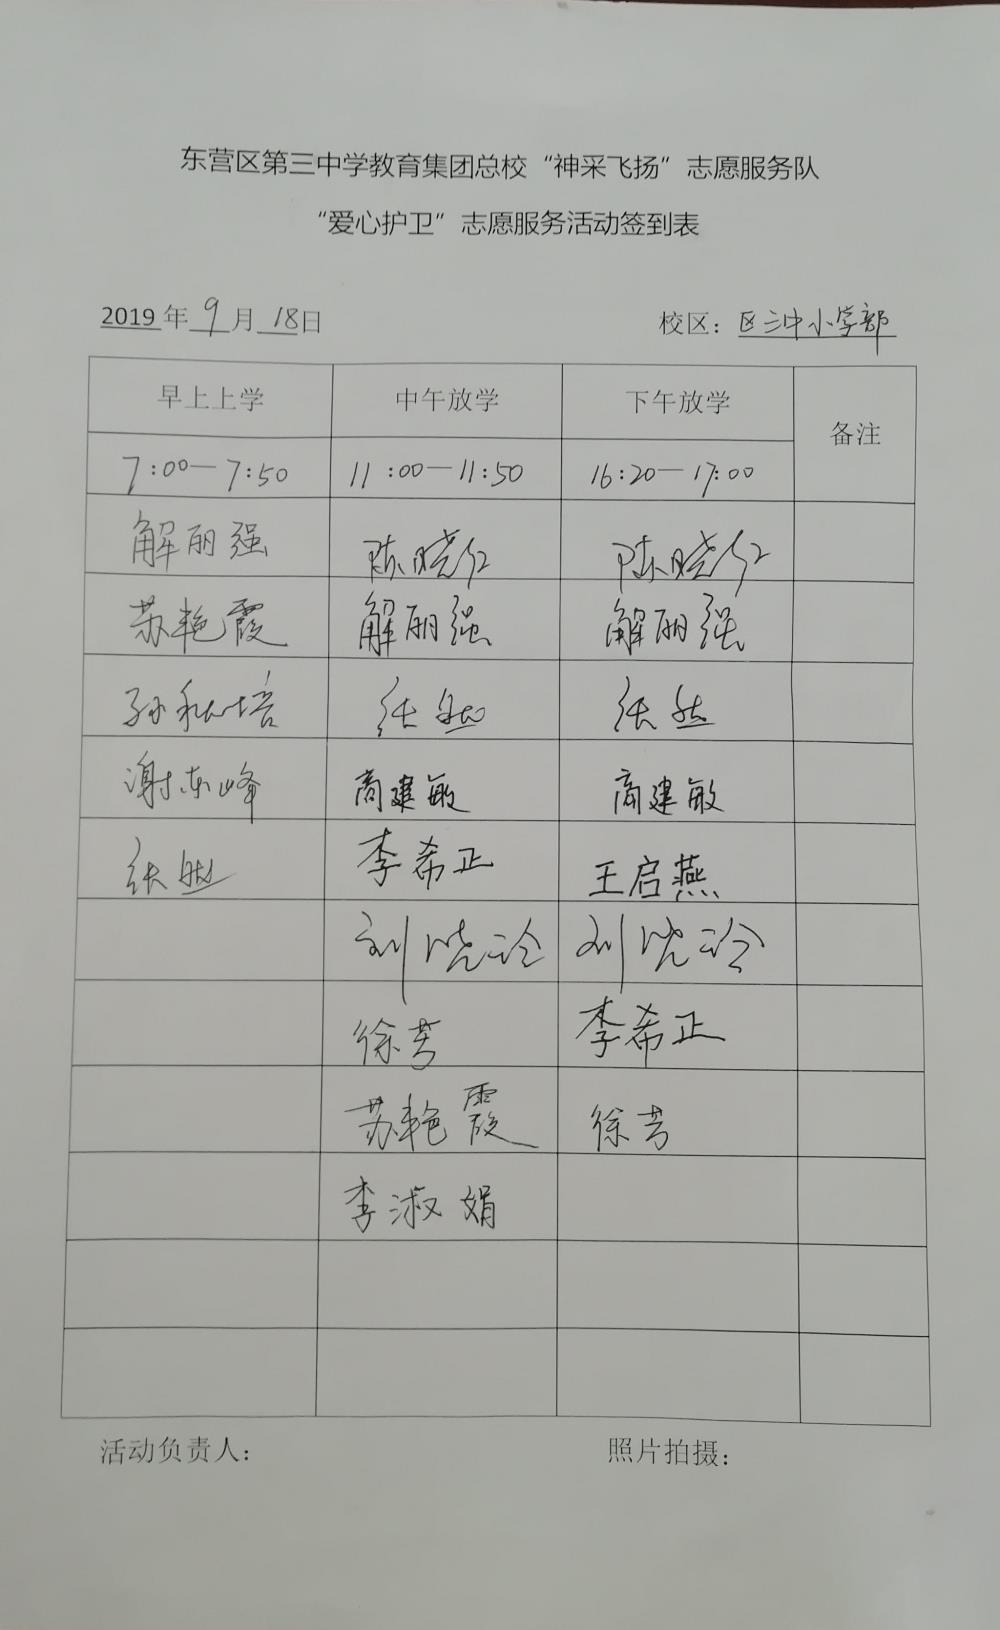 东营区第三中学教育集团总校“神采飞扬”志愿服务队
“爱心护卫”志愿服务活动签到表
2019年 9 月 18日 校区：区三中小学部
早上上学 中午放学 下午放学 备注
7:00—7:50 11:00—11:50 16:20—17:00
解丽强 陈晓红 陈晓红
苏艳霞 解丽强 解丽强
孙 培 张然 张然
谢东峰 商建敏 商建敏
张然 李希正 王启燕
刘晓泠 刘晓泠
徐芳 李希正
苏艳霞 徐芳
李淑娟
活动负责人： 照片拍摄：